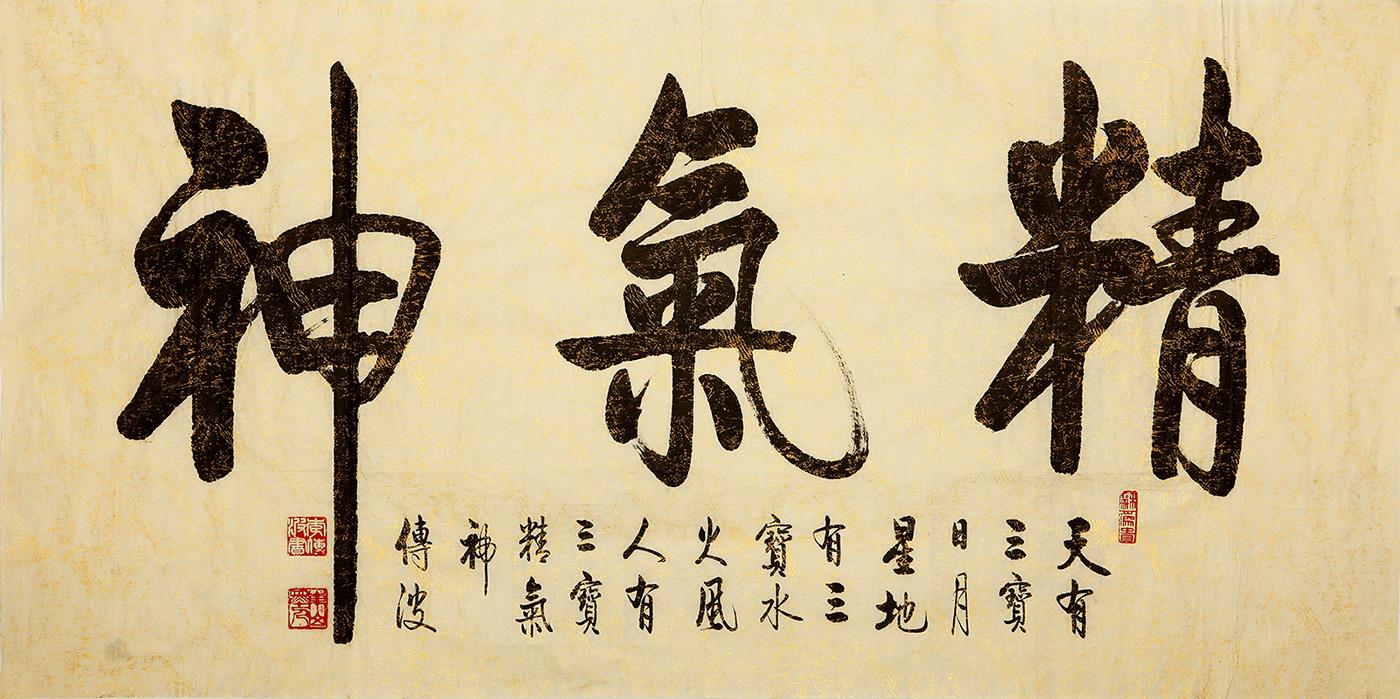 精氣神
天有
三寶
日月
星地
有三
寶水
火風
人有
三寶
精氣
神
傳波
李傳波書